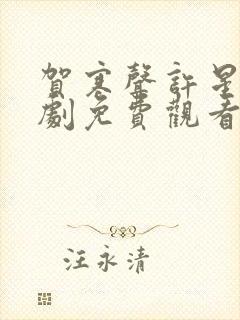 賀寒聲許星
劇免費觀看
汪永清